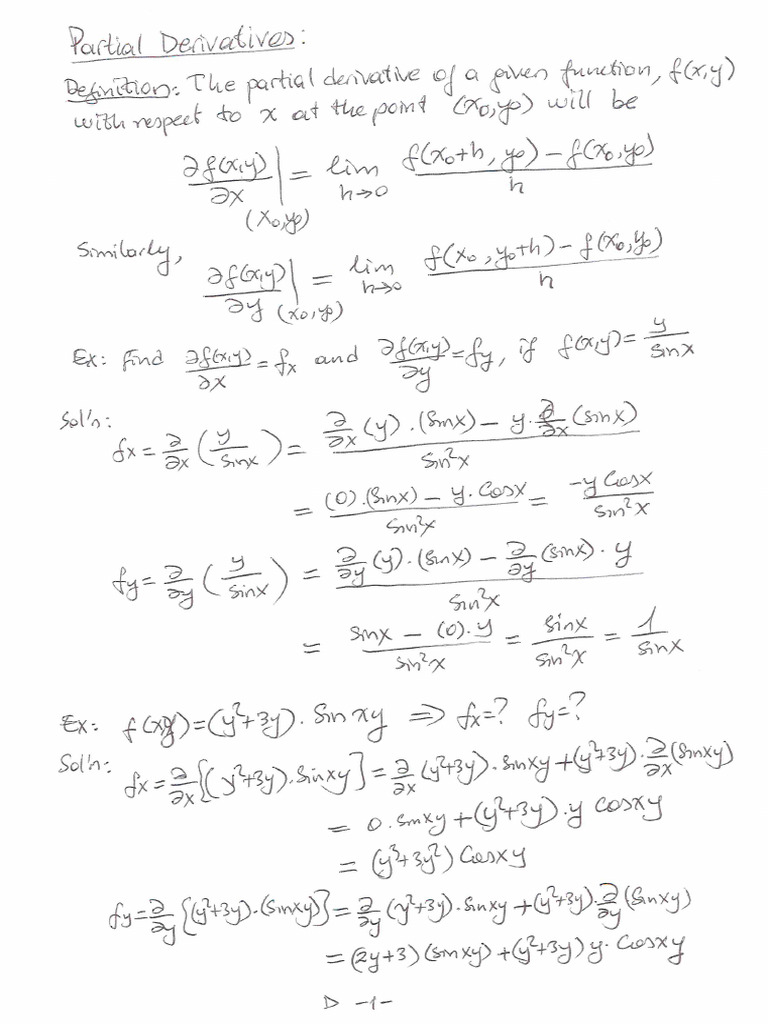 Partial Derivatives:
Definition: The partial derivative of a given function, f(x,y)
with respect to x at the point (x₀,y₀) will be
∂f(x,y)/∂x |(x₀,y₀) = lim h→0 (f(x₀+h, y₀) − f(x₀,y₀))/h
Similarly,
∂f(x,y)/∂y |(x₀,y₀) = lim h→0 (f(x₀, y₀+h) − f(x₀,y₀))/h
Ex: find ∂f(x,y)/∂x = fx and ∂f(x,y)/∂y = fy, if f(x,y) = y/sinx
Sol'n:
fx = ∂/∂x (y/sinx) = (∂/∂x (y) . (sinx) − y . ∂/∂x (sinx))/sin²x
= ((0) . (sinx) − y . cosx)/sin²x = −y cosx/sin²x
fy = ∂/∂y (y/sinx) = (∂/∂y (y) . (sinx) − ∂/∂y (sinx) . y)/sin²x
= (sinx − (0) . y)/sin²x = sinx/sin²x = 1/sinx
Ex: f(x,y) = (y²+3y) . sin xy ⇒ fx = ? fy = ?
Sol'n:
fx = ∂/∂x {(y²+3y) . sinxy} = ∂/∂x (y²+3y) . sinxy + (y²+3y) . ∂/∂x (sinxy)
= 0 . sinxy + (y²+3y) . y cosxy
= (y³+3y²) cosxy
fy = ∂/∂y {(y²+3y) . (sinxy)} = ∂/∂y (y²+3y) . sinxy + (y²+3y) . ∂/∂y (sinxy)
= (2y+3) (sinxy) + (y²+3y) y . cosxy
D -1-